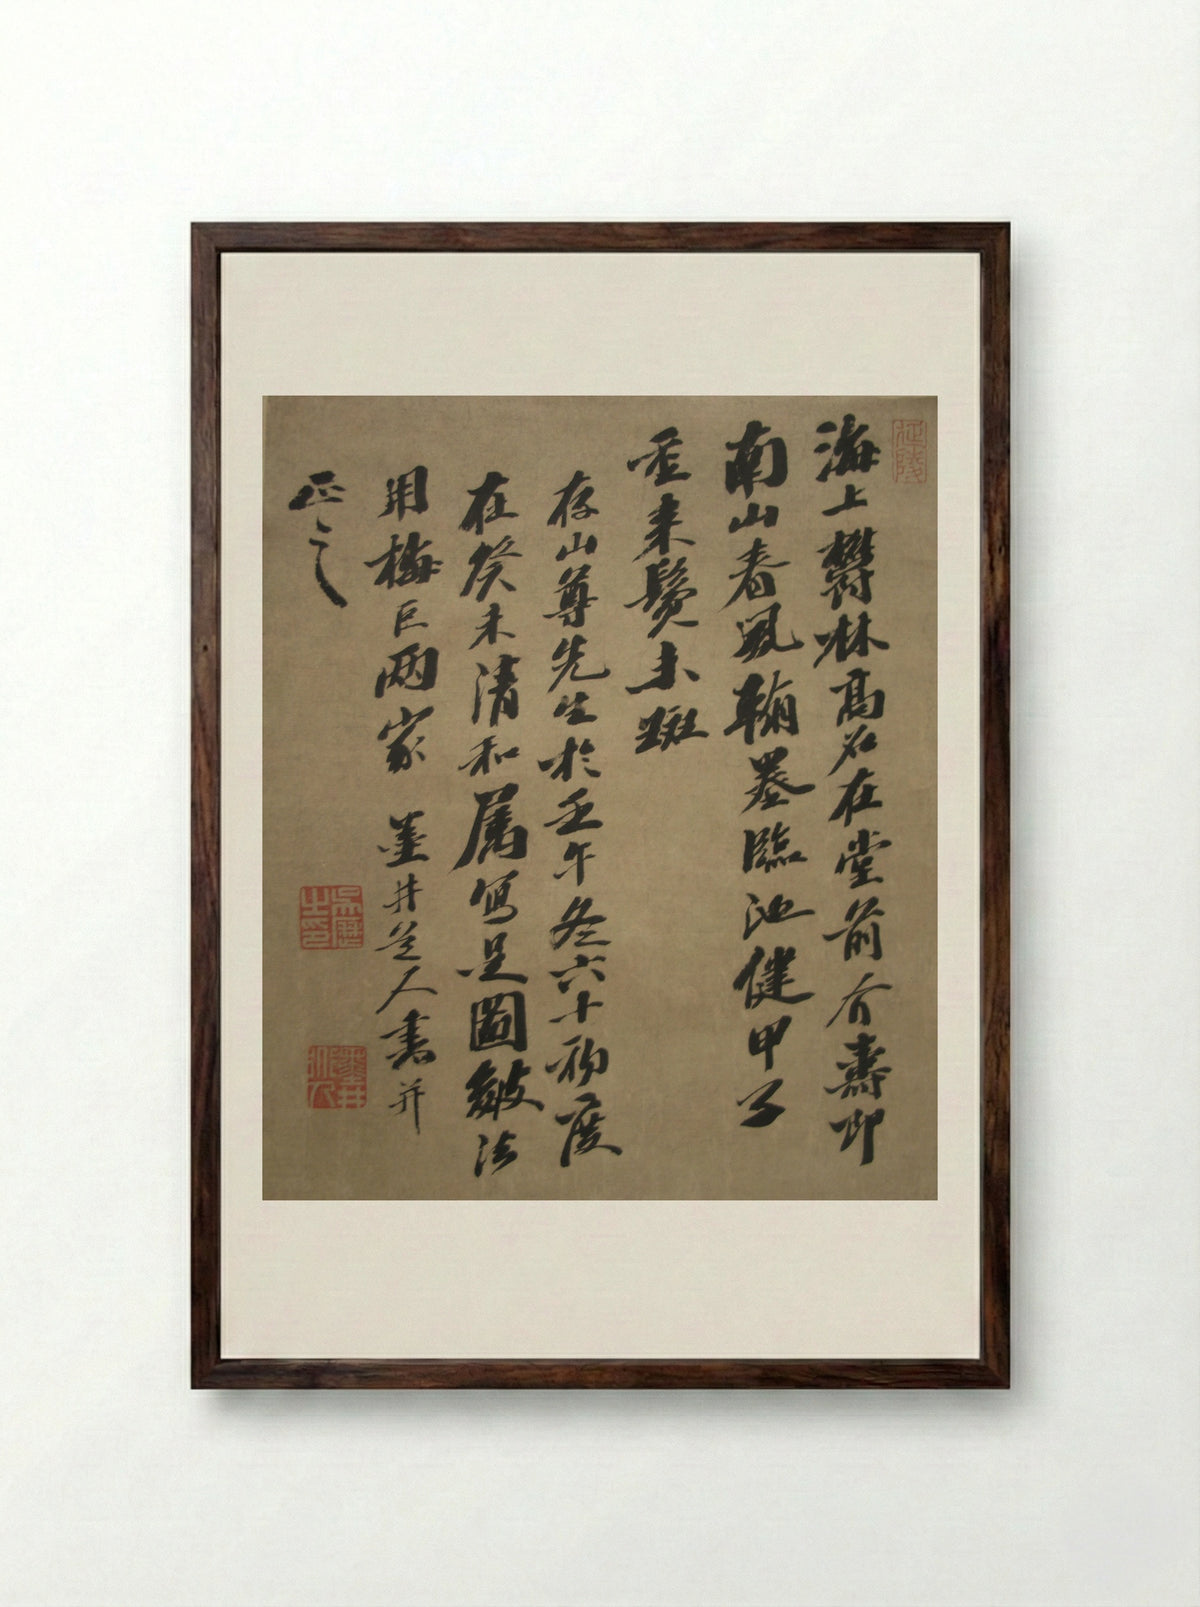 海上鬱林高名在堂前介壽即
南山春風翰墨臨池健甲子
重來鬢未斑
存山尊先生於壬午冬六十初度
在癸未清和属寫是圖皴法
用梅巨兩家 墨井道人書并
正之
延陵
吳歷之印
墨井